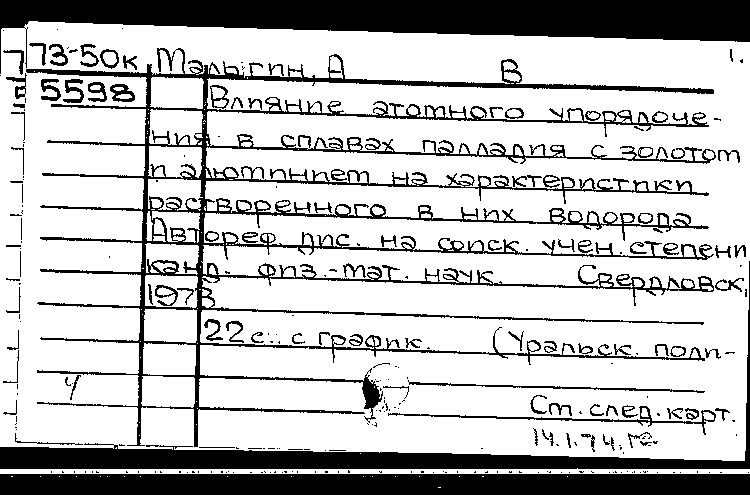 1.
73-50к Малыгин, А В
5598 Влияние атомного упорядоче-
ния в сплавах палладия с золотом
и алюминием на характеристики
растворенного в них водорода
Автореф. дис. на соиск. учен. степени
канд. физ.-мат. наук. Свердловск,
1973
22 с. с график. (Уральск. поли-
Ч
См. след. карт.
14.1.74.